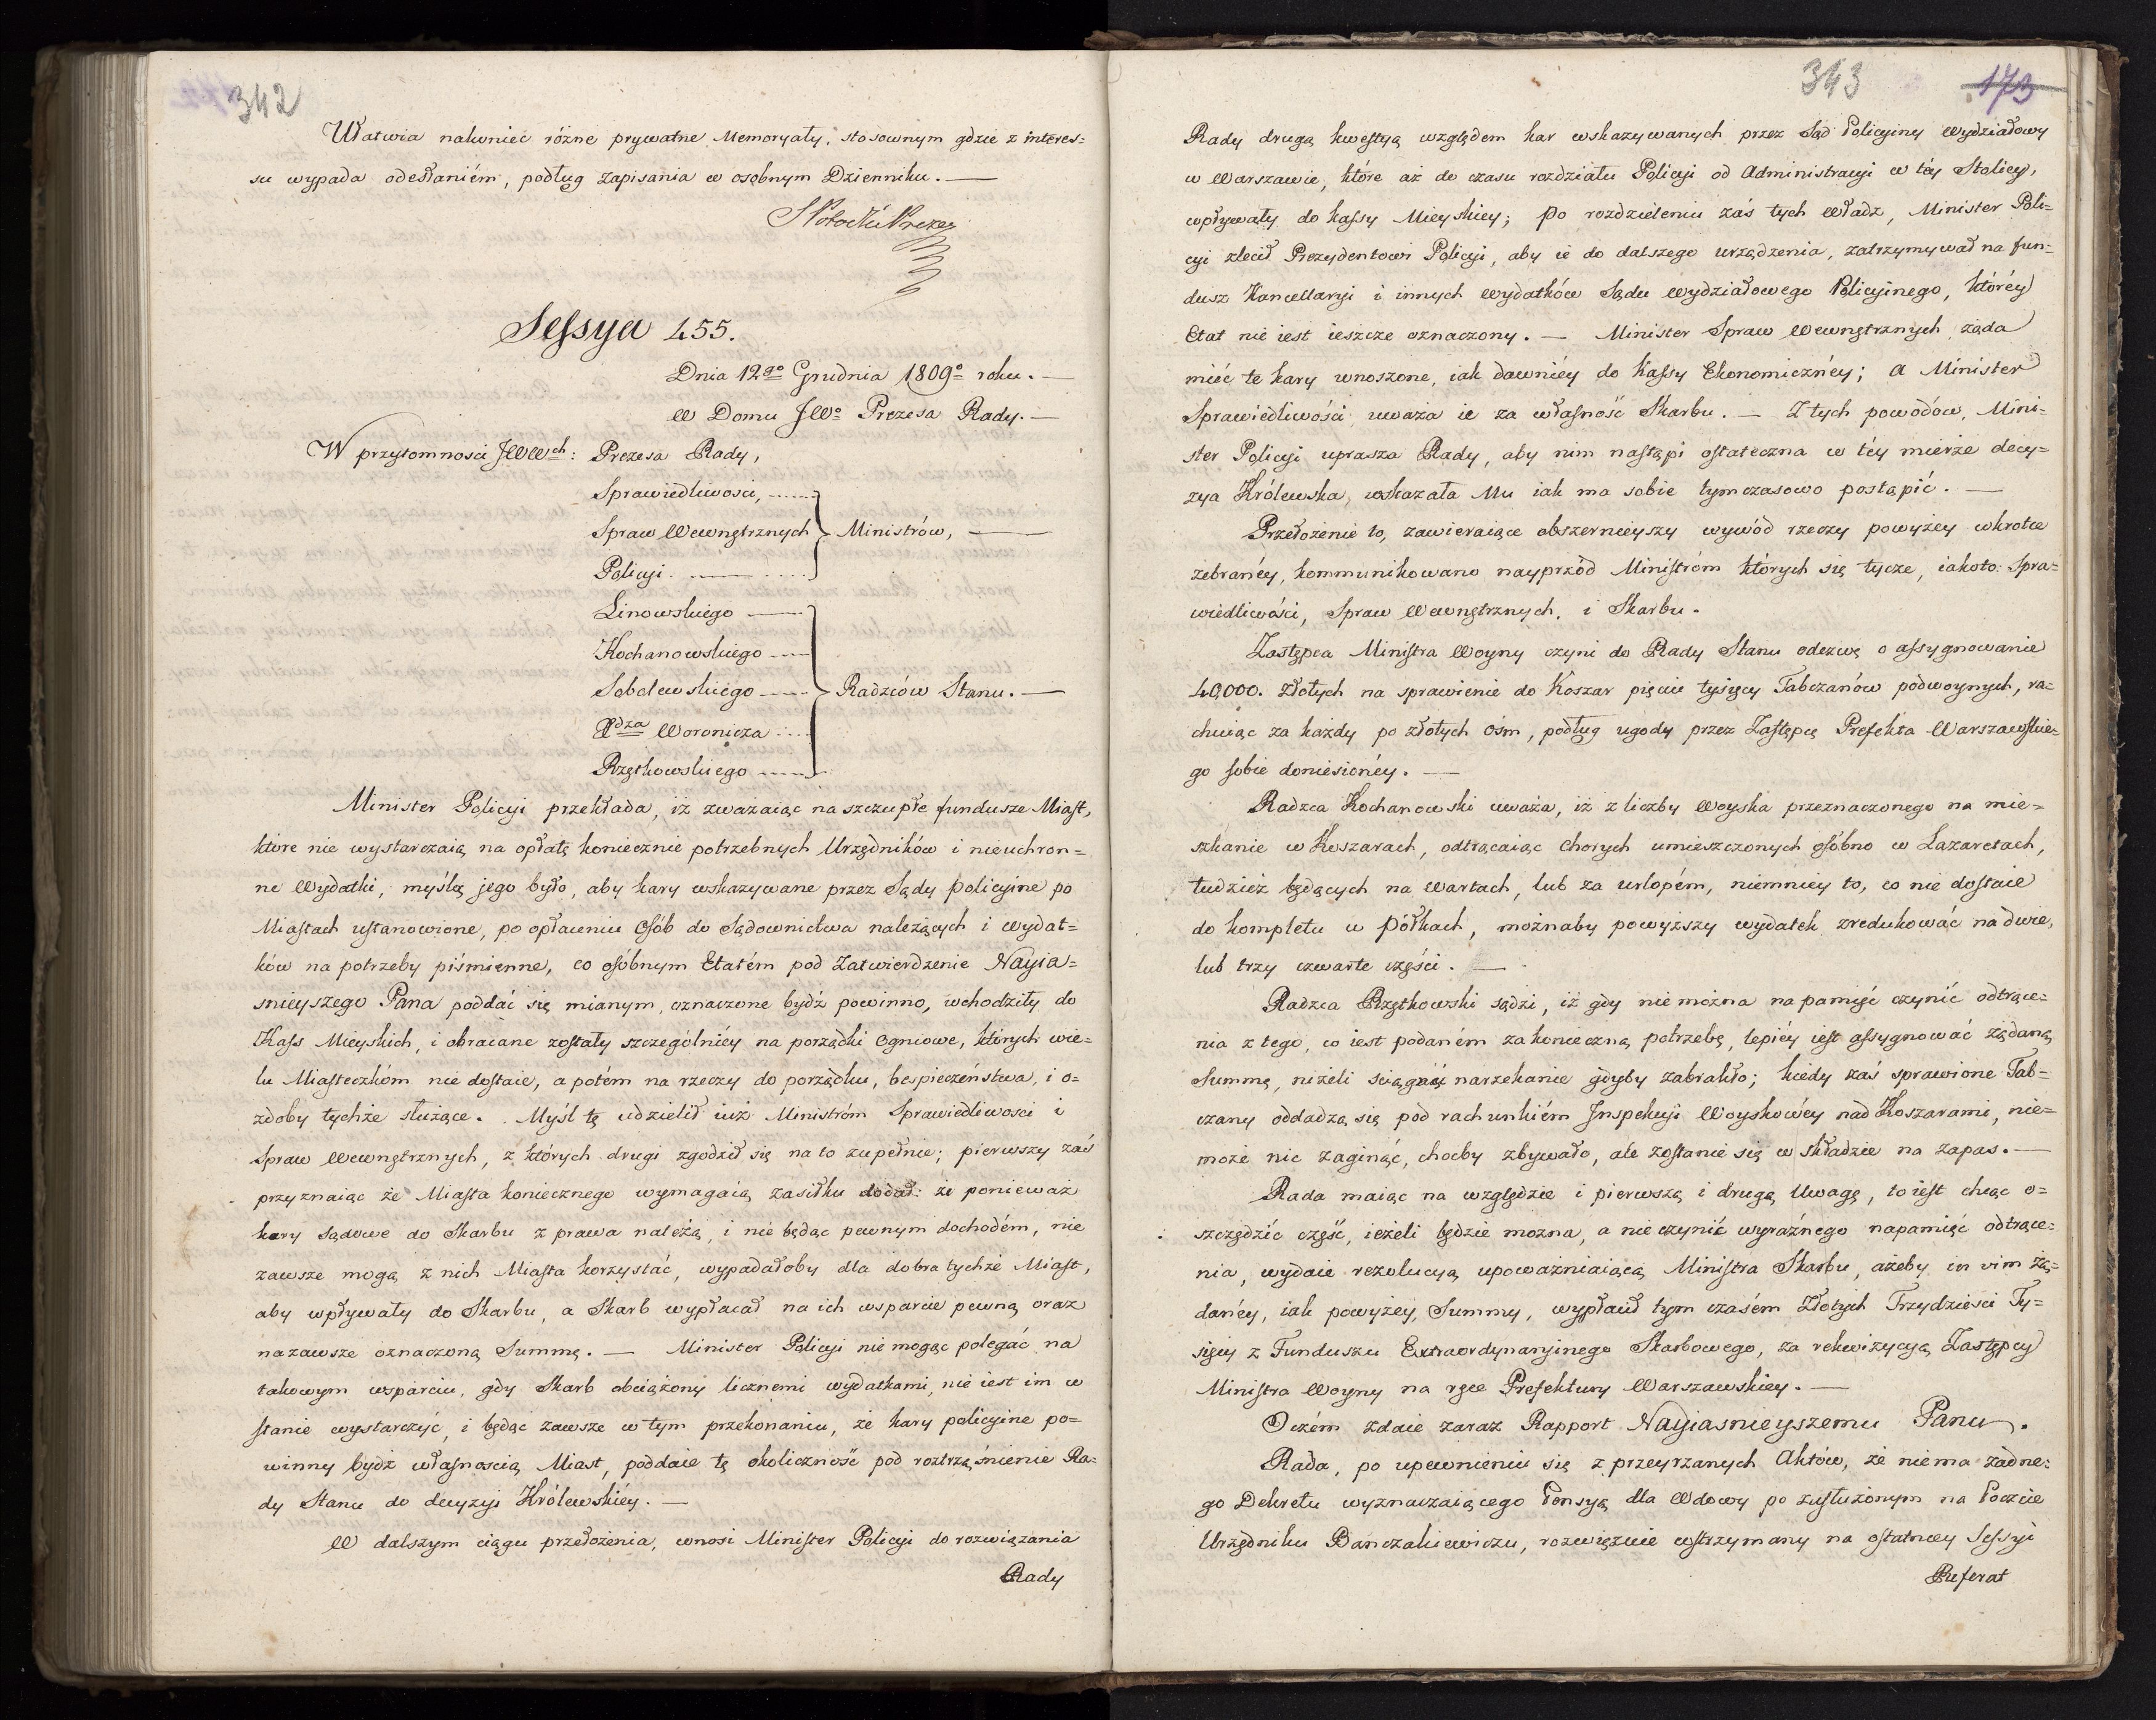 342
Ułatwia nakoniec różne prywatne Memoryały, stosownym gdzie z interes=
su wypada odesłaniém, podług zapisania w osobnym Dzienniku. —
SPotocki Prezes
Sessya 455.
Dnia 12go Grudnia 1809o roku. —
W Domu JWo Prezesa Rady. —
W przytomności JWWch: Prezesa Rady,
Sprawiedliwości,
Spraw Wewnętrznych } Ministrów, —
Policyi
Linowskiego
Kochanowskiego
Sobolewskiego } Radzców Stanu. —
Xdza Woronicza
Rzętkowskiego
Minister Policyi przekłada, iż zważaiąc na szczupłe fundusze Miast,
które nie wystarczaią na opłatę koniecznie potrzebnych Urzędników i nieuchron=
ne Wydatki, myślą jego było, aby kary wskazywane przez Sądy policyine po
Miastach ustanowione, po opłaceniu Osób do Sądownictwa należących i wydat=
ków na potrzeby piśmienne, co osóbnym Etatém pod Zatwierdzenie Nayia=
snieyszego Pana poddać się mianym, oznaczone bydź powinno, wchodziły do
Kass Mieyskich, i obracane zostały szczególniéy na porządki Ogniowe, których wie=
lu Miasteczkóm nie dostaie, a potém na rzeczy do porządku, bespieczeństwa, i o=
zdoby tychże służące. Myśl tę udzielił iuż Ministróm Sprawiedliwosci i
Spraw Wewnętrznych, z których drugi zgodził się na to zupełnie; pierwszy zaś
przyznaiąc że Miasta koniecznego wymagaią zasiłku dodał: że ponieważ
kary Sądowe do Skarbu z prawa należą, i nie będąc pewnym dochodém, nie
zawsze mogą z nich Miasta korzystać, wypadałoby dla dobra tychże Miast,
aby wpływały do Skarbu, a Skarb wypłacał na ich wsparcie pewną oraz
nazawsze oznaczoną Summę. — Minister Policyi nie mogąc polegać na
takowym wsparciu, gdy Skarb obciążony licznemi wydatkami, nie iest im w
stanie wystarczyć, i będąc zawsze w tym przekonaniu, że kary policyine po=
winny bydź własnoscią Miast, poddaie tę okoliczność pod roztrząśnienie Ra=
dy Stanu do decyzyi Królewskiéy. —
W dalszym ciągu przełożenia, wnosi Minister Policyi do rozwiązania
Rady
343 173
Rady drugą kwestyą względem kar wskazywanych przez Sąd Policyiny Wydziałowy
w Warszawie, które aż do czasu rozdziału Policyi od Administracyi w téy Stolicy,
wpływały do kassy Mieyskiey; po rozdzieleniu zaś tych Władz, Minister Poli=
cyi zlecił Prezydentowi Policyi, aby ie do dalszego urządzenia, zatrzymywał na fun=
dusz Kancellaryi i innych wydatków Sądu Wydziałowego Policyinego, któréy
Etat nie iest ieszcze oznaczony. — Minister Spraw Wewnętrznych, żąda
mieć te kary wnoszone, iak dawniéy do Kassy Ekonomicznéy; a Minister
Sprawiedliwości uważa ie za własność Skarbu. — Z tych powodów, Mini=
ster Policyi uprasza Rady, aby nim nastąpi ostateczna w téy mierze decy=
zya Królewska, wskazała Mu iak ma sobie tymczasowo postąpić. —
Przełożenie to, zawieraiące obszernieyszy wywód rzeczy powyżey wkrotce
zebranéy, kommunikowano nayprzód Ministróm których się tycze, iakoto: Spra=
wiedliwości, Spraw Wewnętrznych, i Skarbu.
Zastępca Ministra Woyny czyni do Rady Stanu odezwę o assygnowanie
40,000. złotych na sprawienie do Koszar pięciu tysięcy Tabczanów podwoynych, ra=
chuiąc za każdy po złotych óśm, podług ugody przez Zastępcę Prefekta Warszawskie=
go sobie doniesionéy. —
Radzca Kochanowski uważa, iż z liczby Woyska przeznaczonego na mie=
szkanie w Koszarach, odtrącaiąc Chorych umieszczonych osóbno w Lazaretach,
tudzież będących na Wartach, lub za urlopém, niemniey to, co nie dostaie
do kompletu w półkach, możnaby powyższy wydatek zredukować na dwie,
lub trzy czwarte części. —
Radzca Rzętkowski sądzi, iż gdy nie można na pamięć czynić odtrące=
nia z tego, co iest podaném za konieczną potrzebę, lepiéy iest assygnować żądaną
Summę, niżeli sciągnąć narzekanie gdyby zabrakło; kiedy zaś sprawione Tab=
czany oddadzą się pod rachunkiém Jnspekcyi Woyskowéy nad Koszarami, nie=
może nic zaginąć, choćby zbywało, ale zostanie się w składzie na zapas. —
Rada maiąc na względzie i pierwszą i drugą Uwagę, to iest chcąc o=
szczędzić część, ieżeli będzie można, a nie czynić wyraźnego napamięć odtrące=
nia, wydaie rezolucyą upoważniaiącą Ministra Skarbu, ażeby in vim żą=
danéy, iak powyżey, Summy, wypłacił tym czasém Złotych Trzydzieści Ty=
sięcy z Funduszu Extraordynaryinego Skarbowego, za rekwizycyą Zastępcy
Ministra Woyny na ręce Prefektury Warszawskiey. —
O czém zdaie zaraz Rapport Nayiasnieyszemu Panu.
Rada, po upewnieniu się z przeyrzanych Aktów, że niema żadne=
go Dekretu wyznaczaiącego Pensyą dla Wdowy po zasłużonym na Poczcie
Urzędniku Banczakiewiczu, rozwięzuie wstrzymany na ostatniey Sessyi
Referat